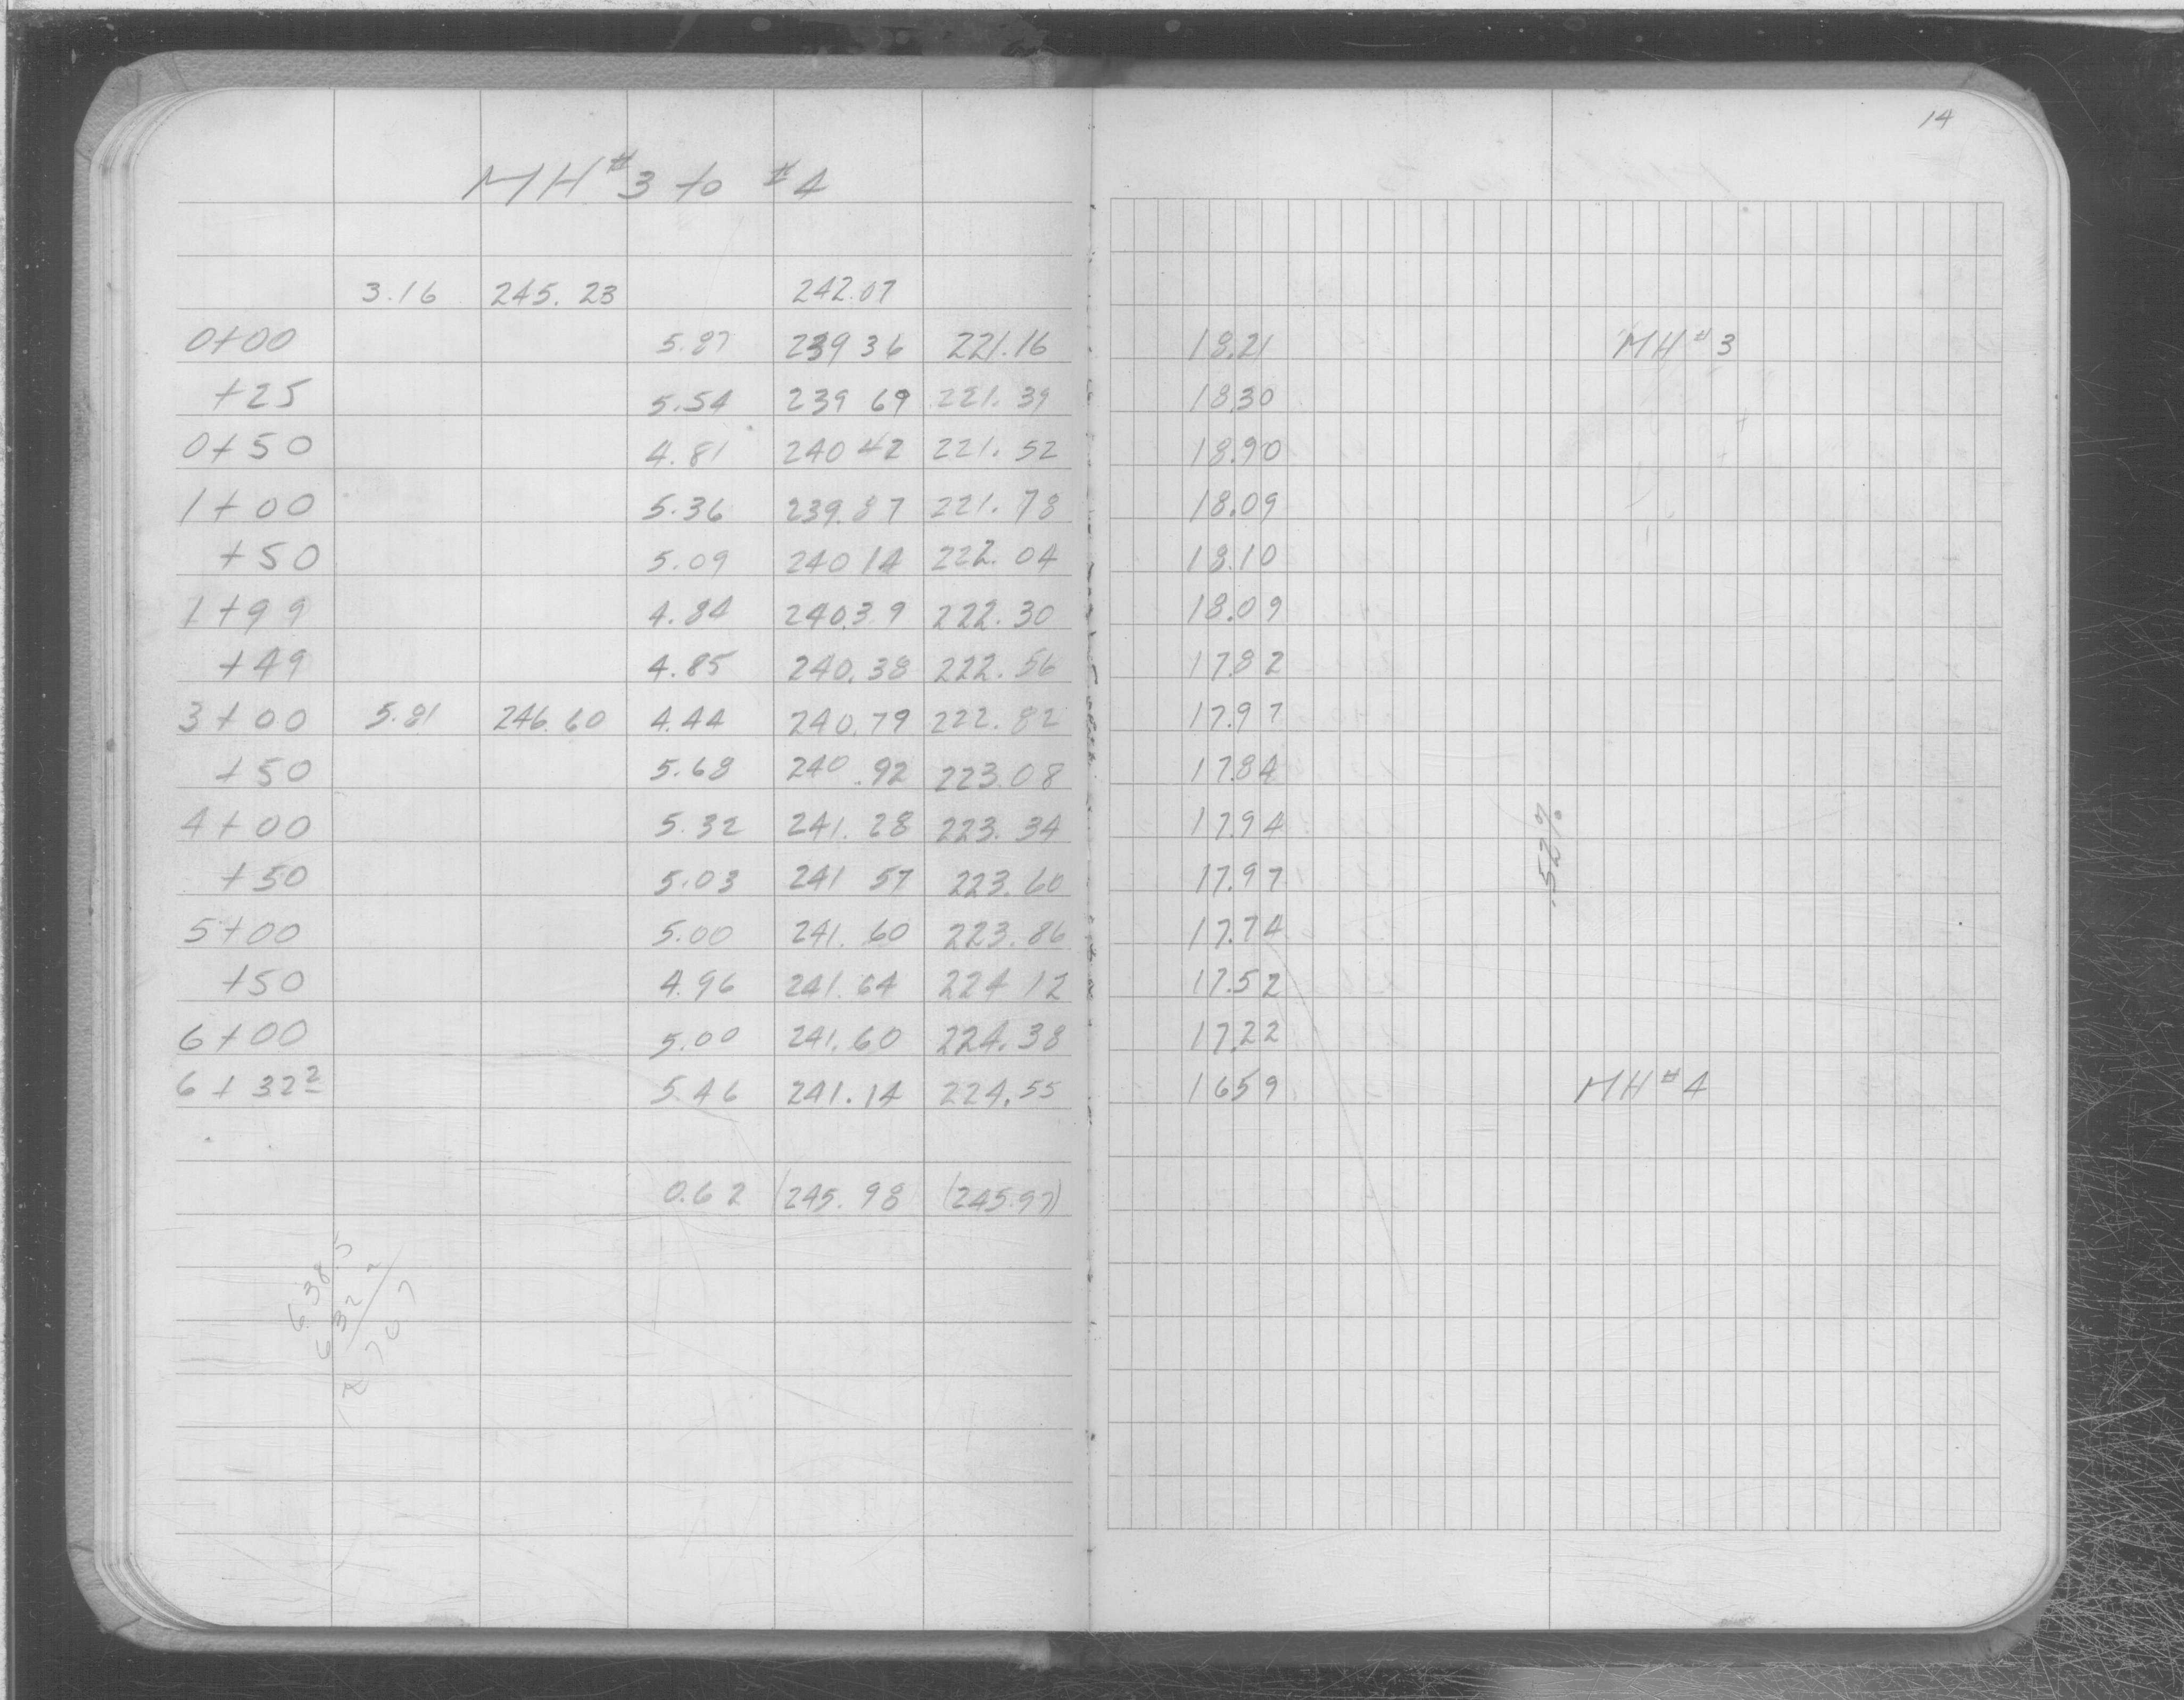 14
MH #3 to #4
3.16 245.23 242.07
0+00 5.87 239 36 221.16 18.21 MH #3
+25 5.54 239 69 221.39 18.30
0+50 4.81 240 42 221.52 18.90
1+00 5.36 239.87 221.78 18.09
+50 5.09 240 14 222.04 18.10
1+99 4.84 240.39 222.30 18.09
+49 4.85 240.38 222.56 17.82
3+00 5.81 246.60 4.44 240.79 222.82 17.97
+50 5.68 240.92 223.08 17.84
4+00 5.32 241.28 223.34 17.94
+50 5.03 241 57 223.60 17.97
.52%
5+00 5.00 241.60 223.86 17.74
+50 4.96 241.64 224 12 17.52
6+00 5.00 241.60 224.38 17.22
6+32 2 5.46 241.14 224.55 16 59 MH #4
0.62 (245.98 (245.97)
638.5
632 2